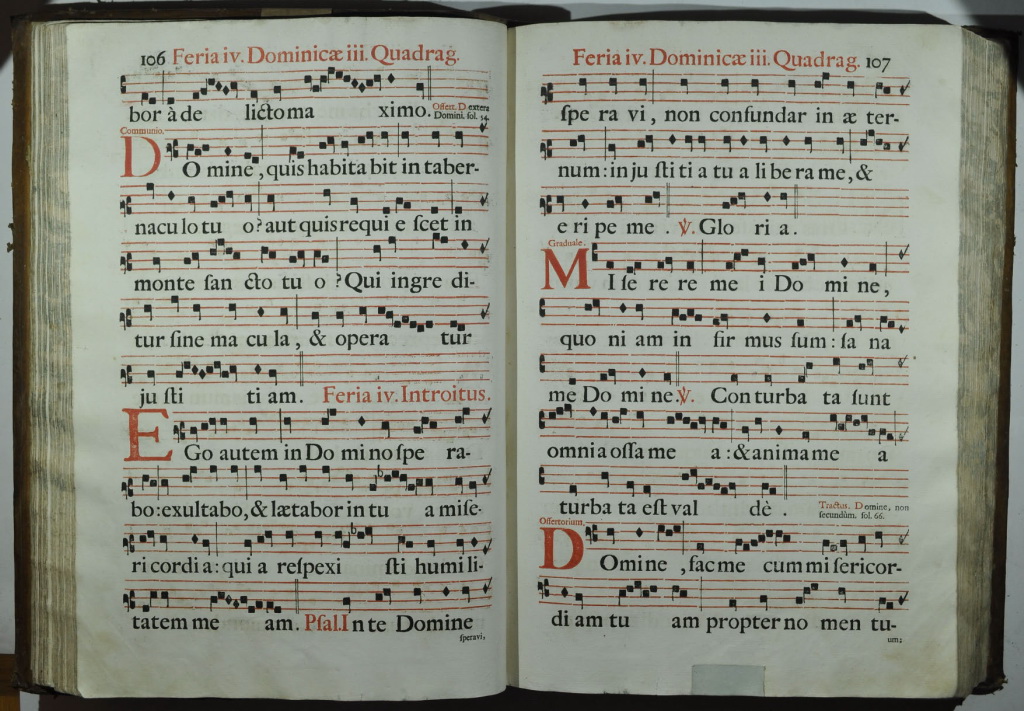 106 Feria iv. Dominicæ iii. Quadrag.
bor à de lictoma ximo. Offert. D extera
Domini. fol. 34.
Communio.
D O mine, quis habita bit in taber-
naculo tu o? aut quis requi e ſcet in
monte ſan cto tu o? Qui ingre di-
tur ſine ma cu la, & opera tur
ju ſti ti am. Feria iv. Introitus.
E Go autem in Do mi no ſpe ra-
bo: exultabo, & lætabor in tu a miſe-
ri cordi a: qui a reſpexi ſti humili-
tatem me am. Pſal. In te Domine
ſperavi,
Feria iv. Dominicæ iii. Quadrag. 107
ſpe ra vi, non confundar in æ ter-
num: in ju ſti ti a tu a li be ra me, &
e ri pe me. ℣. Glo ri a.
Graduale.
M I ſe re re me i Do mi ne,
quo ni am in fir mus ſum: ſa na
me Do mi ne. ℣. Conturba ta ſunt
omnia oſſa me a: & anima me a
turba ta eſt val dè. Tractus. D omine, non
ſecundùm. fol. 66.
Offertorium.
D Omine, fac me cum mi ſericor-
di am tu am propter no men tu-
um;